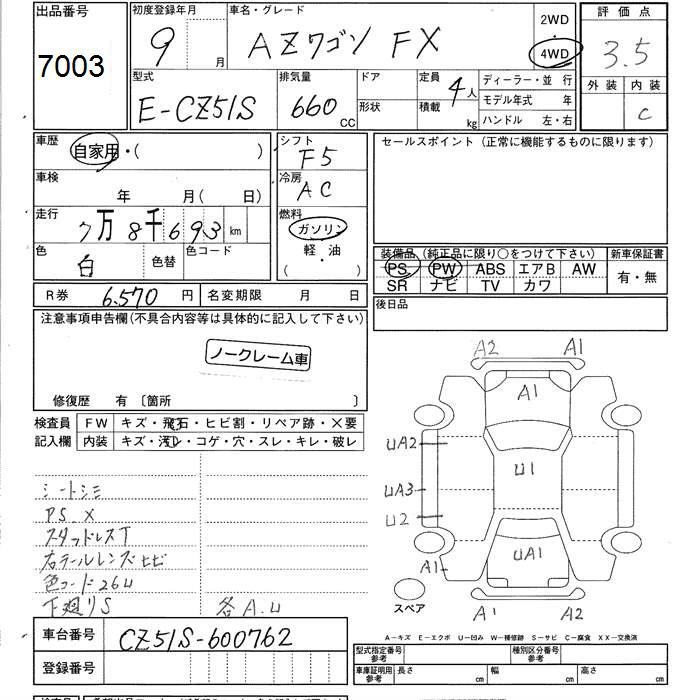 出品番号 初度登録年月 車名・グレード 2WD 評価点
7003 9 月 AZワゴン FX 4WD 3.5
型式 排気量 ドア 定員 4人 ディーラー・並 行 外装 内装
E-CZ51S 660 CC 形状 積載 kg モデル年式 年 C
ハンドル 左・右
車歴 自家用・( ) シフト F5 セールスポイント(正常に機能するものに限ります)
車検 年 月( 日) 冷房 AC
走行 7万8千693km 燃料 ガソリン
色 白 色替 色コード 軽・油
( )
装備品(純正品に限り○をつけて下さい) 新車保証書
PS PW ABS エアB AW 有・無
SR ナビ TV カワ
R券 6,570 円 名変期限 月 日 後日品
注意事項申告欄(不具合内容等は具体的に記入して下さい)
ノークレーム車
修復歴 有〔箇所 〕
検査員 FW キズ・飛石・ヒビ割・リペア跡・×要
記入欄 内装 キズ・汚レ・コゲ・穴・スレ・キレ・破レ
シートシミ
PS X
スタッドレスT
右テールレンズヒビ
色コード26U
下廻りS 各A.U
A2 A1
A1
UA2
U1
UA3
U2
UA1
A1
スペア
A1 A2
A-キズ E-エクボ U-凹み W-補修跡 S-サビ C-腐食 XX-交換済
車台番号 CZ51S-600762
型式指定番号 参考 種別区分番号 参考
登録番号 車庫証明用 参考 長さ cm 幅 cm 高さ cm